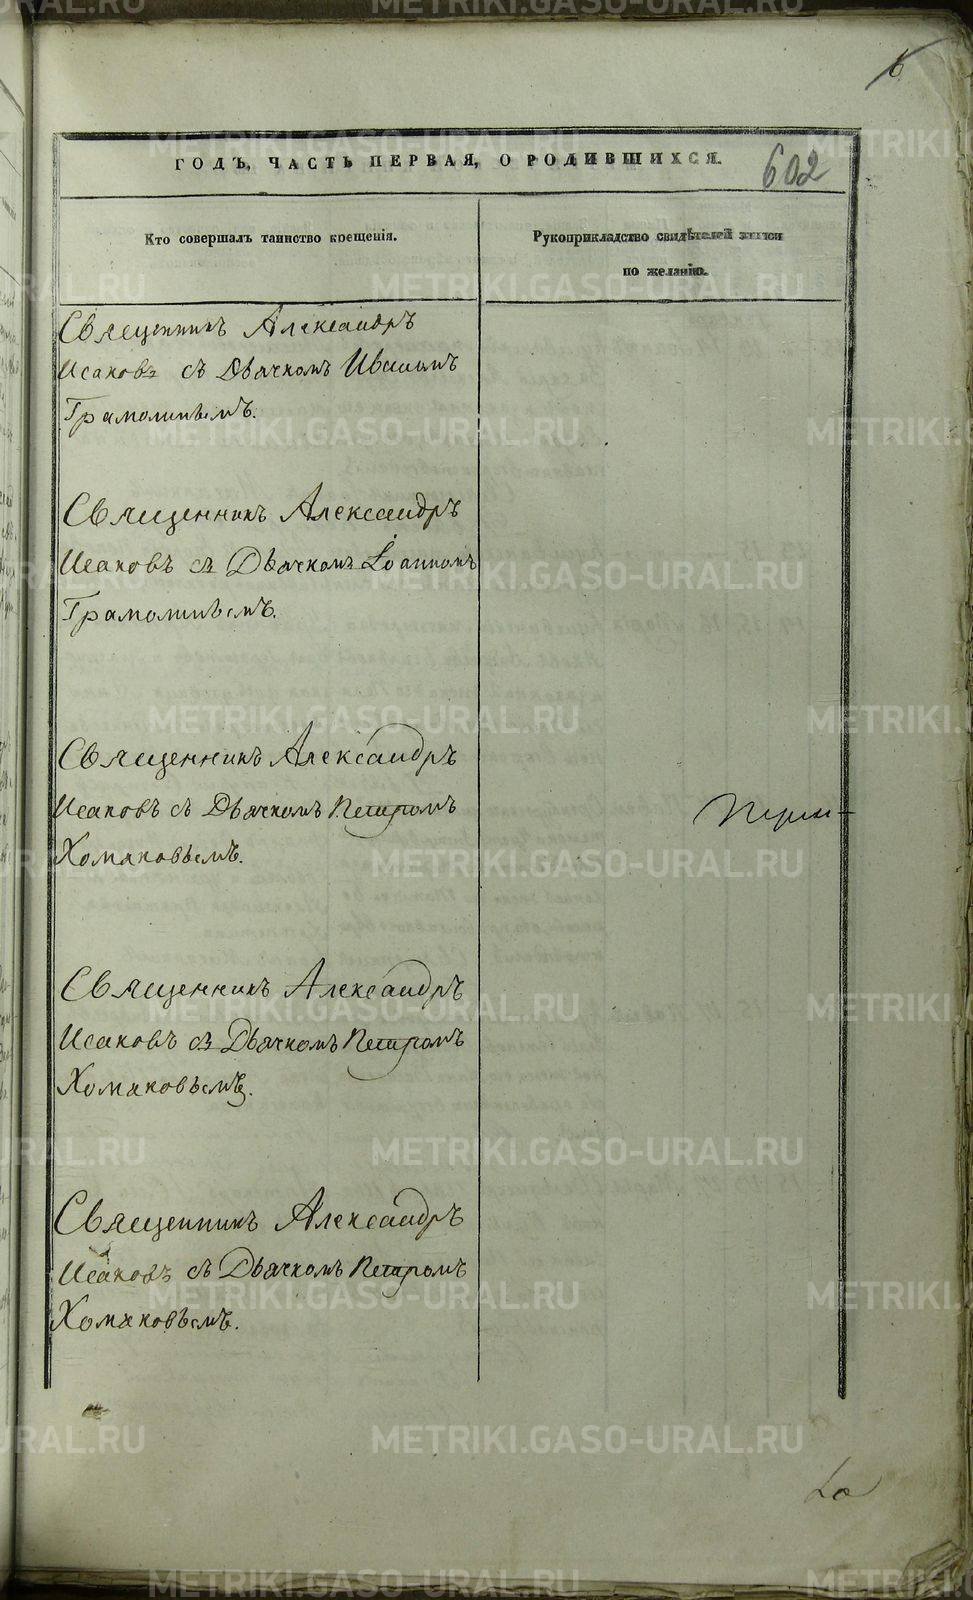 6
ГОДЪ, ЧАСТЬ ПЕРВАЯ, О РОДИВШИХСЯ.
602
Кто совершалъ таинство крещенія.
Рукоприкладство свидѣтелей записи
по желанію.
Священникъ Александръ
Исаковъ съ Дьячкомъ Иваномъ
Грамолинымъ.
Священникъ Александръ
Исаковъ съ Дьячкомъ Іоанномъ
Грамолинымъ.
Священникъ Александръ
Исаковъ съ Дьячкомъ Петромъ
Хомяковымъ.
Священникъ Александръ
Исаковъ съ Дьячкомъ Петромъ
Хомяковымъ.
Священникъ Александръ
Исаковъ съ Дьячкомъ Петромъ
Хомяковымъ.
METRIKI.GASO-URAL.RU